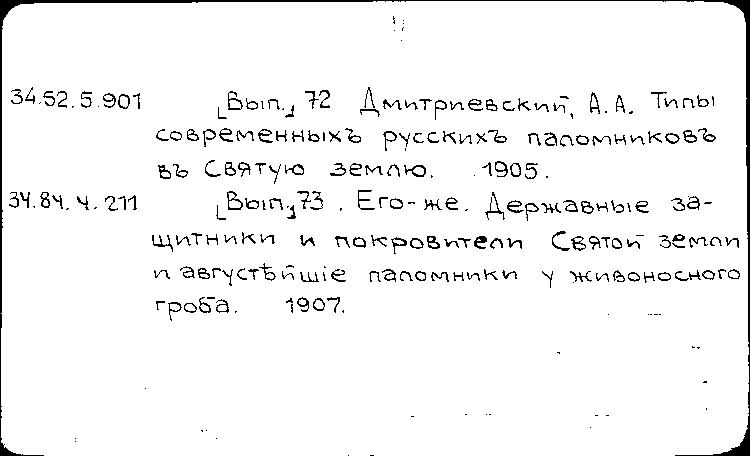 34.52.5.901 [Вып.] 72 Дмитриевский, А.А. Типы
современныхъ русскихъ паломниковъ
въ Святую землю. 1905.
34.84.4.211 [Вып.] 73. Его-же. Державные за-
щитники и покровители Святой земли
и августѣйшіе паломники у живоносного
гроба. 1907.